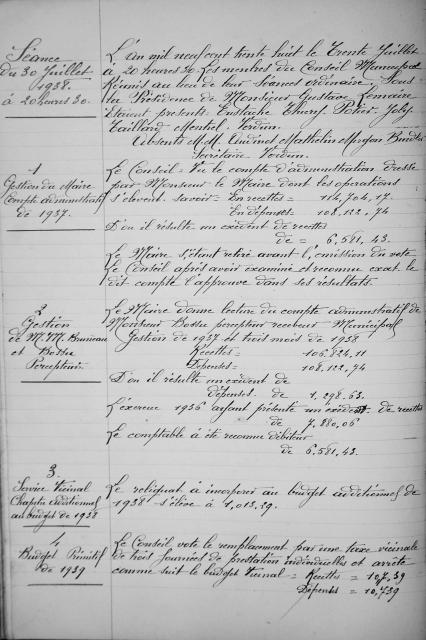 Séance
du 30 Juillet
1938.
à 20 heures 30.
L'an mil neuf cent trente huit le Trente Juillet
à 20 heures 30. Les membres du Conseil Municipal
Réunis au lieu de leur séances ordinaire. Sous
la Présidence de Monsieur Gustave Lemaire
Etaient présents. Eustache Thierry. Potier. Joly.
Taillard. Mentiel. Verdun.
Absents M.M. Audinet Mathelin Morgan
Secrétaire Verdun.
1
Gestion du Maire
Compte administratif
de 1937.
Le Conseil = Vu le compte d'administration dressé
par Monsieur le Maire dont les opérations
s'élèvent. savoir = En recettes = 114,704,17
En dépenses = 108,122,74
D'ou il résulte un exédent de recettes
de = 6,581,43.
Le Maire s'étant retiré avant l'émission du vote
Le Conseil après avoir examiné et reconnu exat. le
dit compte l'approuve dans ses résultats.
2
Gestion
de M.M. Bruneau
et Bossu
Percepteurs
Le Maire donne lecture du compte administratif de
Monsieur Bossu percepteur receveur = Municipal
Gestion de 1937 et trois mois de 1938
Recettes = 106,824,11
Dépenses = 108,122,74
D'ou il résulte un exédent de
dépenses. de 1,298,63.
L'exercice 1936 ayant présenté un exédent de recettes
de 7,880,06
Le comptable à été reconnu débiteur
de 6,581,43.
3.
Service Vicinal
Chapitre additionnel
au budget de 1938
Le reliquat à incorporer au budget additionnel de
1938 s'élève à 1,013,39.
4
Budget Primitif
de 1939
Le Conseil vote le remplacement par une taxe vicinale
de trois Journées de prestation individuelles et arrête
comme suit le budget Vicinal = Recettes = 10,739
Dépenses = 10,739